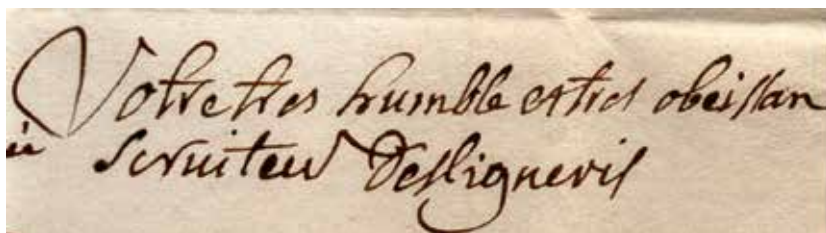 Votre tres humble et tres obeissan
serviteur Desligneris